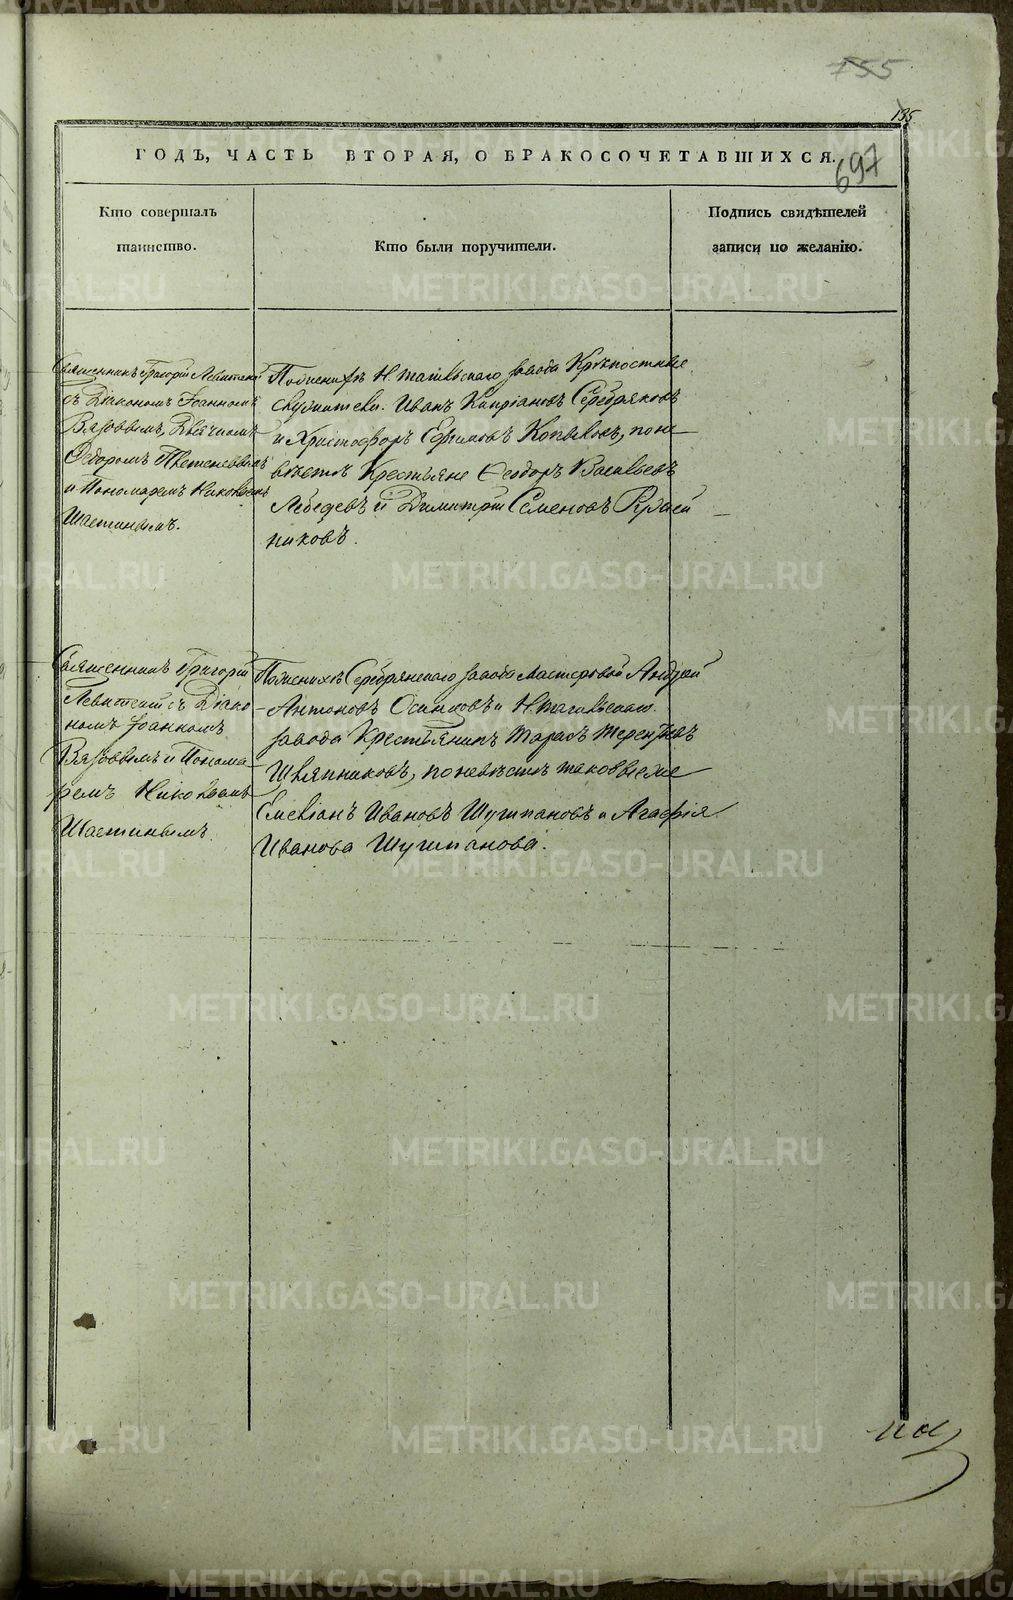 755
195
697
ГОДЪ, ЧАСТЬ ВТОРАЯ, О БРАКОСОЧЕТАВШИХСЯ.
Кто совершалъ
таинство.
Кто были поручители.
Подпись свидѣтелей
записи по желанію.
Священникъ Григорій Левитскій
съ Діакономъ Іоанномъ
Вязовымъ, Дьячкомъ
Федоромъ
и Пономаремъ Николаемъ
Шастинымъ.
По женихѣ Н. Тагильскаго завода Крѣпостные
служители. Иванъ Кипріановъ Серебряковъ
и Христофоръ Ефимовъ Копыловъ, по не
вѣстѣ Крестьяне Ѳеодоръ Васильевъ
Лебедевъ и Димитрій Семеновъ
никовъ.
Священникъ Григорій
Левитскій съ Діако
номъ Іоанномъ
Вязовымъ и Понома
ремъ Николаемъ
Шастинымъ.
По женихѣ Серебрянскаго завода Мастеровой Андрей
Антоновъ Осинцовъ и Н. Тагильскаго
завода Крестьянинъ Тарасъ Терентьевъ
по невѣстѣ таковые же
Емеліанъ Ивановъ Шушпановъ и Агафія
Иванова Шушпанова.
METRIKI.GASO-URAL.RU